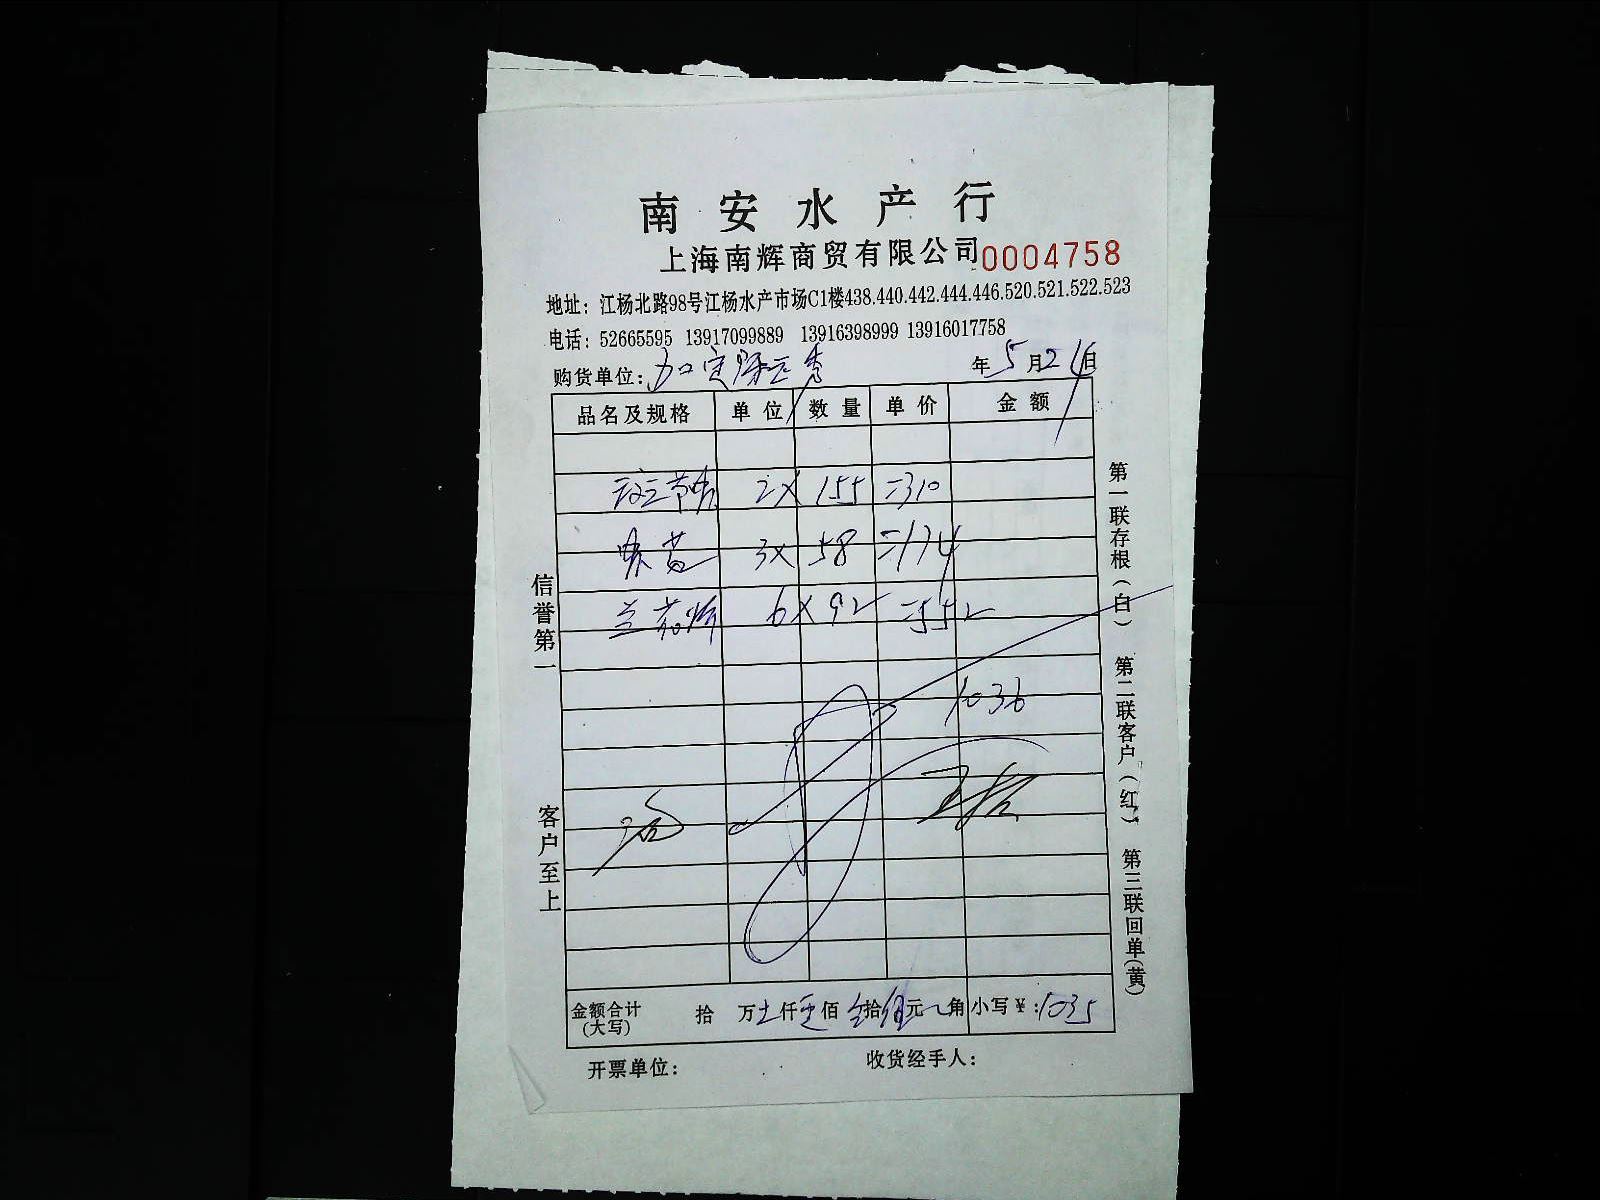 南安水产行
上海南辉商贸有限公司 0004758
地址：江杨北路98号江杨水产市场C1楼438.440.442.444.446.520.521.522.523
电话：52665595 13917099889 13916398999 13916017758
购货单位： 年5月24日
品名及规格 单位 数量 单价 金额
2 X 155 =310
3X 58 =174
6X 92 =552
1036
金额合计(大写) 拾 万 仟 佰 拾 元 角 小写￥：1035
开票单位： 收货经手人：
信誉第一
客户至上
第一联存根(白)
第二联客户(红)
第三联回单(黄)